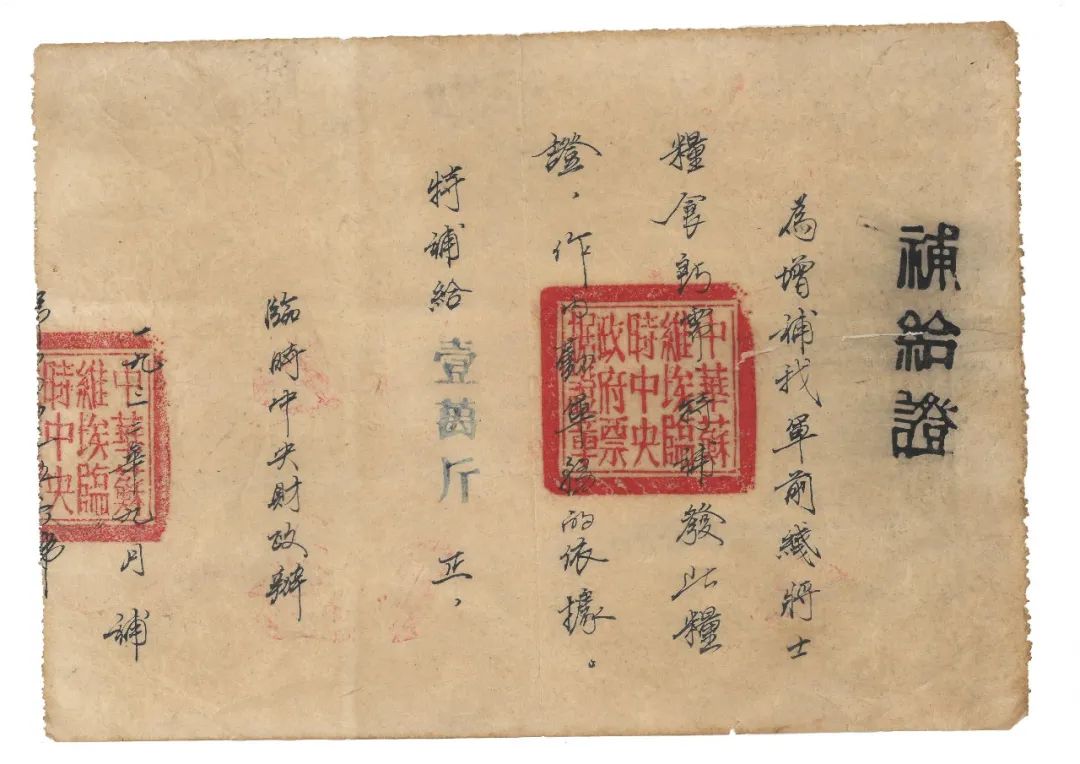 補給證
為增補我軍前綫將士
糧食 特 發此糧
證，作 軍 的依據。
特補給壹萬斤正，
臨時中央財政辦
一九三 年 九月 補
中華蘇
維埃臨
時中央
政府票
据
中華蘇
維埃臨
時中央